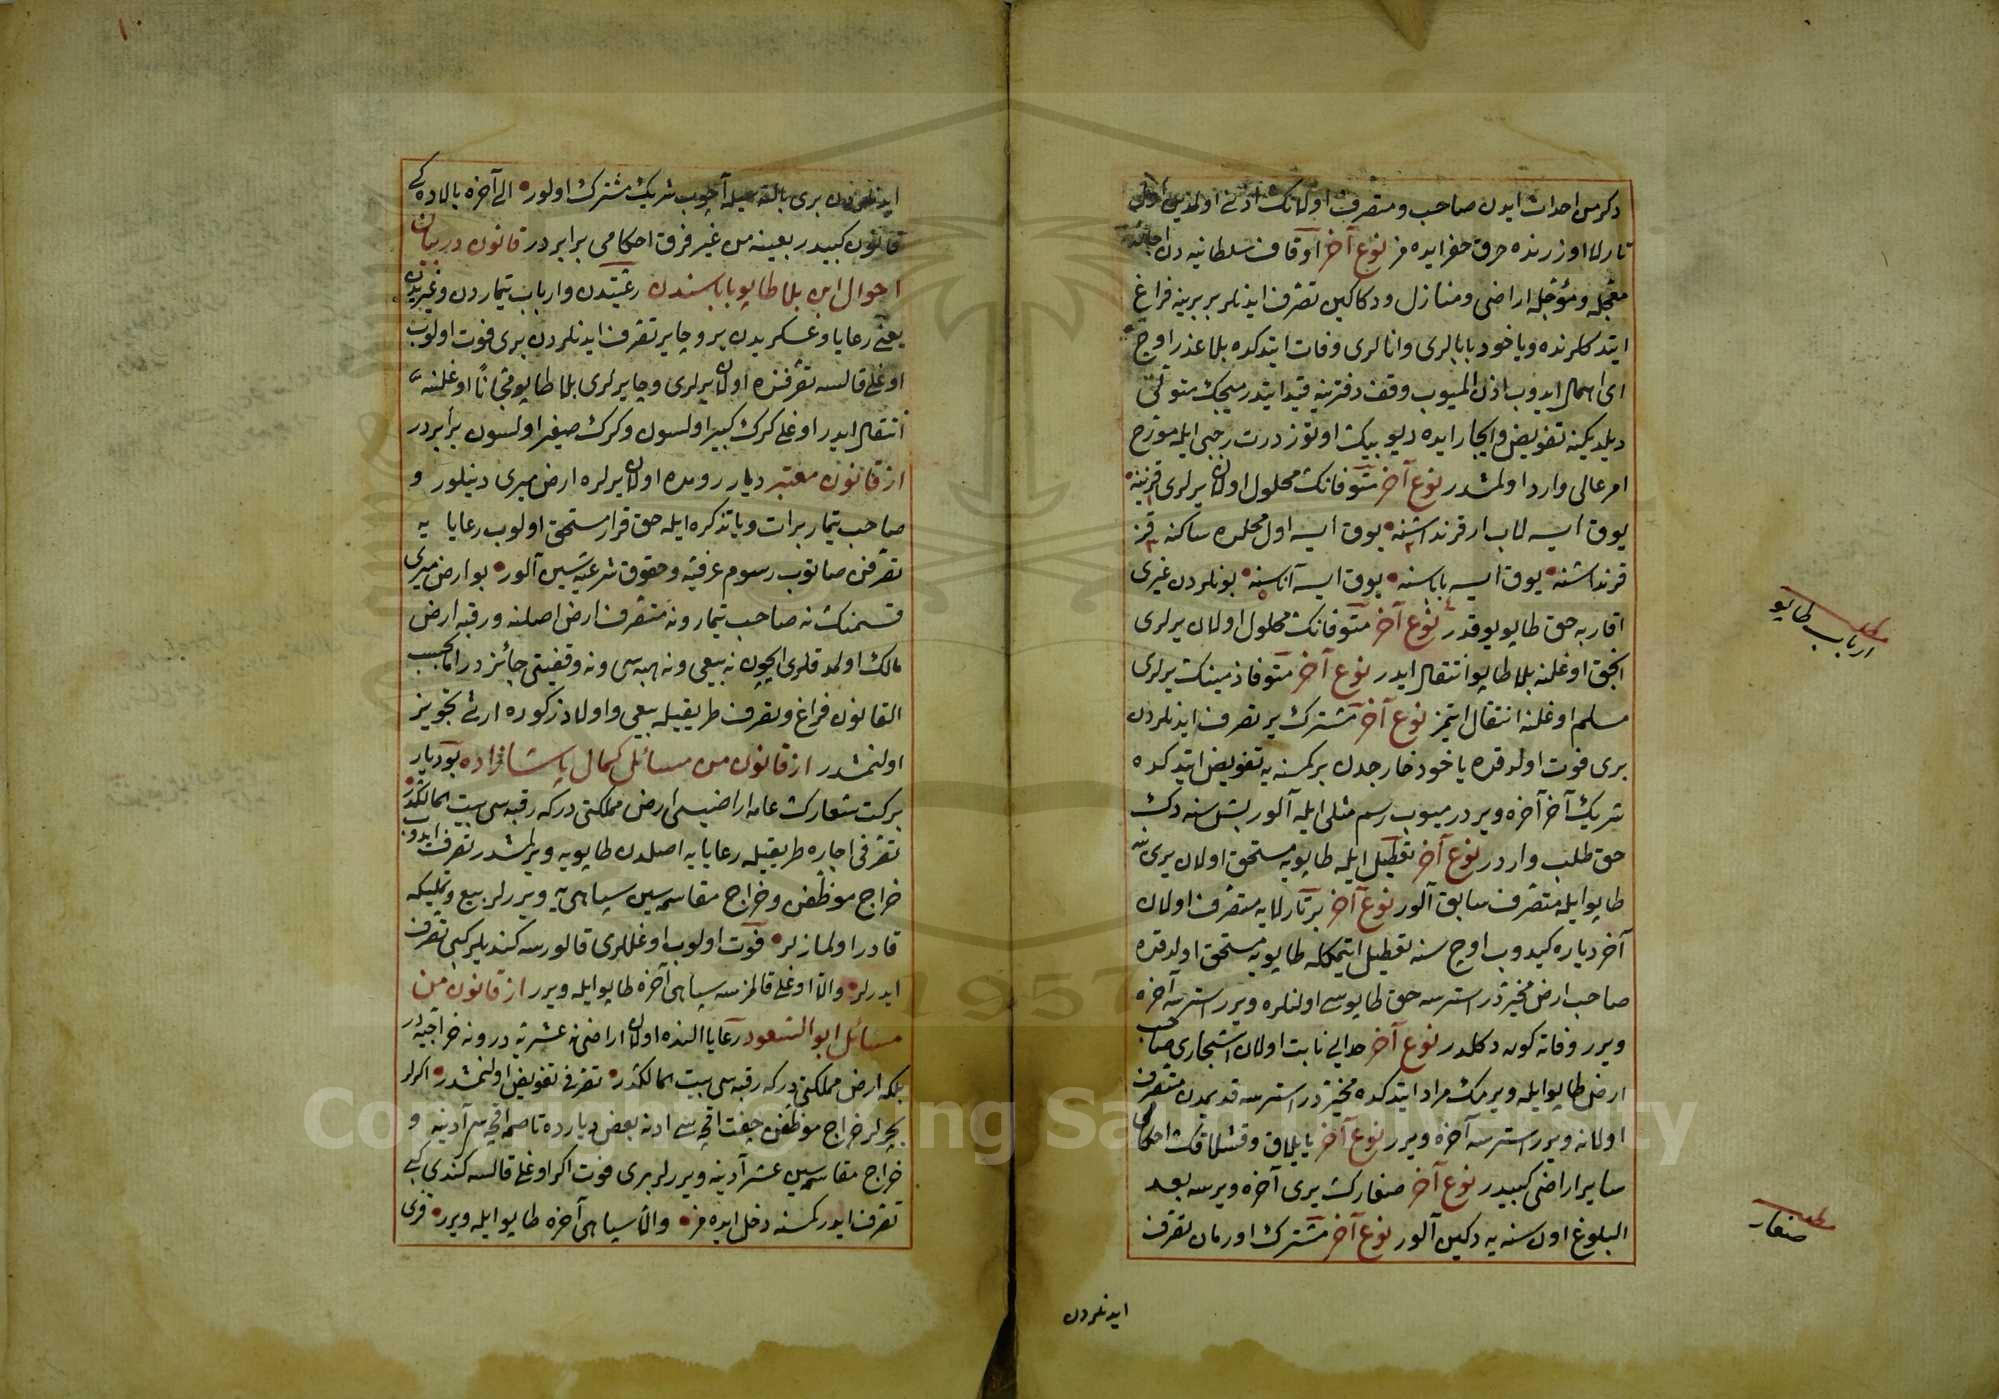 دكرمن احداث ايدن صاحب و متصرف اولانك اذنى اولمدين
تارلا اوزرنده حرق حفر ايده مز نوع آخر اوقاف سلطانيه دن اجارهٔ
معجله و مؤجله اراضى و منازل و دكاكين تصرف ايدنلر بربرينه فراغ
ايتدكلرنده و ياخود بابالرى و انالرى وفات ايتدكده بلا عذر اوچ
اى اهمال ايدوب اذن الميوب وقف دفترينه قيد ايتدرميجك متولى
ديلديكنه تفويض و ايجار ايده ديو بيك اوتوز درت رجبى ايله مورخ
امر عالى وارد اولمشدر نوع آخر متوفانك محلول اولان يرلرى قزينه
يوق ايسه لاب ار قرنداشنه يوق ايسه اول محلده ساكنه قز
قرنداشنه يوق ايسه باباسنه يوق ايسه آناسنه بونلردن غيرى
اقاربه حق طاپو يوقدر نوع آخر متوفانك محلول اولان يرلرى
انجق اوغلنه بلا طاپو انتقال ايدر نوع آخر متوفا ذمينك يرلرى
مسلم اوغلنه انتقال ايتمز نوع آخر مشترك ير تصرف ايدنلردن
برى فوت اولدقده ياخود خارجدن بر كمسنه يه تفويض ايتدكده
شريك آخر آخره ويردرميوب رسم مثلى ايله آلور بش سنه دك
حق طلب واردر نوع آخر تعطيل ايله طاپويه مستحق اولان يرى ينه
طاپو ايله متصرف سابق آلور نوع آخر بر تارلايه متصرف اولان
آخر دياره كيدوب اوچ سنه تعطيل ايتمكله طاپويه مستحق اولدقده
صاحب ارض مخيردر استرسه حق طاپوسى اولنلره ويرر استرسه آخره
ويرر وفاته كوره دكلدر نوع آخر خدايى نابت اولان اشجارى صاحب
ارض طاپو ايله ويرمك مراد ايتدكده مخيردر استرسه قديمدن متصرف
اولانه ويرر استرسه آخره ويرر نوع آخر يايلاق و قشلاقك احكامى
ساير اراضى كبيدر نوع آخر صغارك يرى آخره ويرسه بعد
البلوغ اون سنه يه دكين آلور نوع آخر مشترك اورمان تصرف
ايدنلردن
ارباب طاپو
صغار
١٠
ايدنلردن برى بالقه ايله آچوب شريك مشترك اولور الى آخره بالاده كى
قانون كبيدر بعينه من غير فرق احكامى برابردر قانون در بيان
احوال ابن بلا طاپو باباسندن رعيتدن و ارباب تيماردن و غيريدن
يعنى رعايا و عسكريدن ير و چاير تصرف ايدنلردن برى فوت اولوب
اوغلى قالسه تصرفنده اولان يرلرى و چايرلرى بلا طاپو مجاناً اوغلنه
انتقال ايدر اوغلى كرك كبير اولسون و كرك صغير اولسون برابردر
از قانون معتبر ديار رومده اولان يرلره ارض ميرى دينلور و
صاحب تيمار برات و يا تذكره ايله حق قرار مستحق اولوب رعايا يه
تصرفن صاتوب رسوم عرفيه و حقوق شرعيه سين آلور بو ارض ميرى
قسمنك نه صاحب تيمار و نه متصرف ارض اصلنه و رقبه ارض
مالك اولمدقلرى ايچون نه بيعى و نه هبه سى و نه وقفيتى جائزدر اما بحسب
القانون فراغ و تصرف طريقيله بيعى و اولاد ذكوره ارثى تجويز
اولنمشدر از قانون من مسائل كمال پاشا زاده بو ديار
بركت شعارك عامه اراضيسى ارض مملكتدر كه رقبه سى بيت المالكدر
تصرفى اجاره طريقيله رعايايه اصلدن طاپويه ويرلمشدر تصرف ايدوب
خراج موظفن و خراج مقاسمه سين سپاهى يه ويررلر بيع و تمليكه
قادر اولمازلر فوت اولوب اوغللرى قالورسه كنديلر كبى تصرف
ايدرلر والا اوغلى قالمزسه سپاهى آخره طاپو ايله ويرر از قانون من
مسائل ابو السعود رعايا النده اولان اراضى نه عشريه در و نه خراجيه در
بلكه ارض مملكتدر كه رقبه سى بيت المالكدر تصرفى تفويض اولنمشدر اكرلر
بچرلر خراج موظفن چفت اقچه سى ادنه بعض ديارده تاصمه اقچه سى آدينه و
خراج مقاسمه سين عشر آدينه ويررلر برى فوت اكر اوغلى قالسه كندى كبى
تصرف ايدر كمسنه دخل ايده مز والا سپاهى آخره طاپو ايله ويرر قزى
Copyright © King Saud University
1957